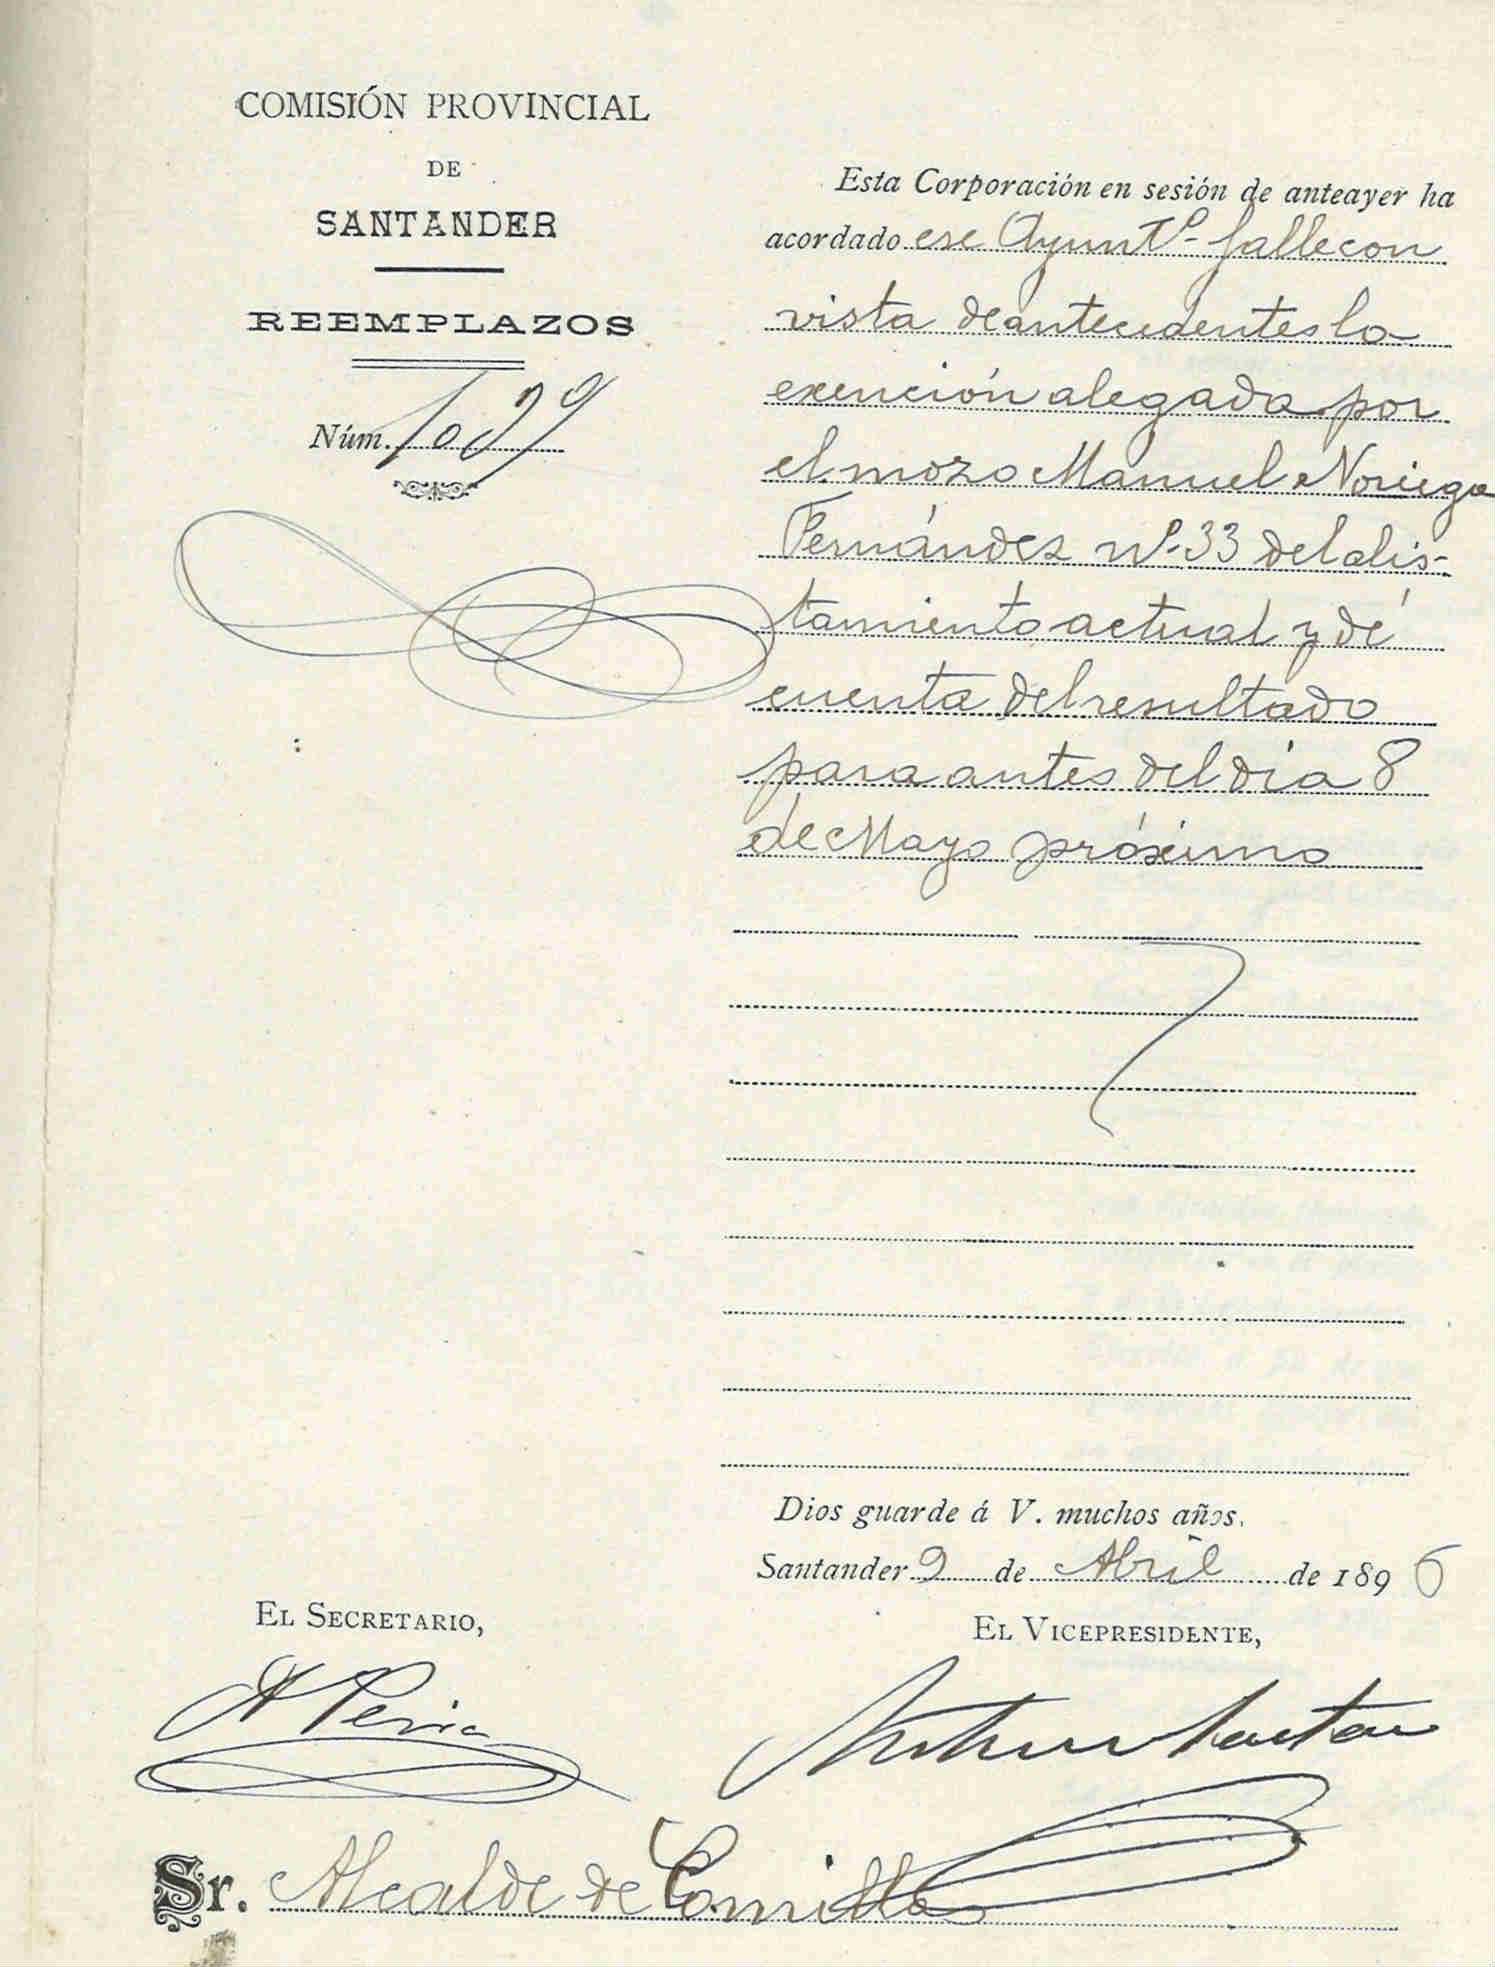 COMISIÓN PROVINCIAL
DE
SANTANDER
REEMPLAZOS
Núm. 1039
Esta Corporación en sesión de anteayer ha
acordado ese Ayuntº falle con
vista de antecedentes la
exención alegada por
el mozo Manuel Noriega
Fernández nº 33 del alis-
tamiento actual y dé
cuenta del resultado
para antes del día 8
de Mayo próximo
Dios guarde á V. muchos años.
Santander 9 de Abril de 1896
EL SECRETARIO,
EL VICEPRESIDENTE,
A Peria
Sr. Alcalde de Comillas